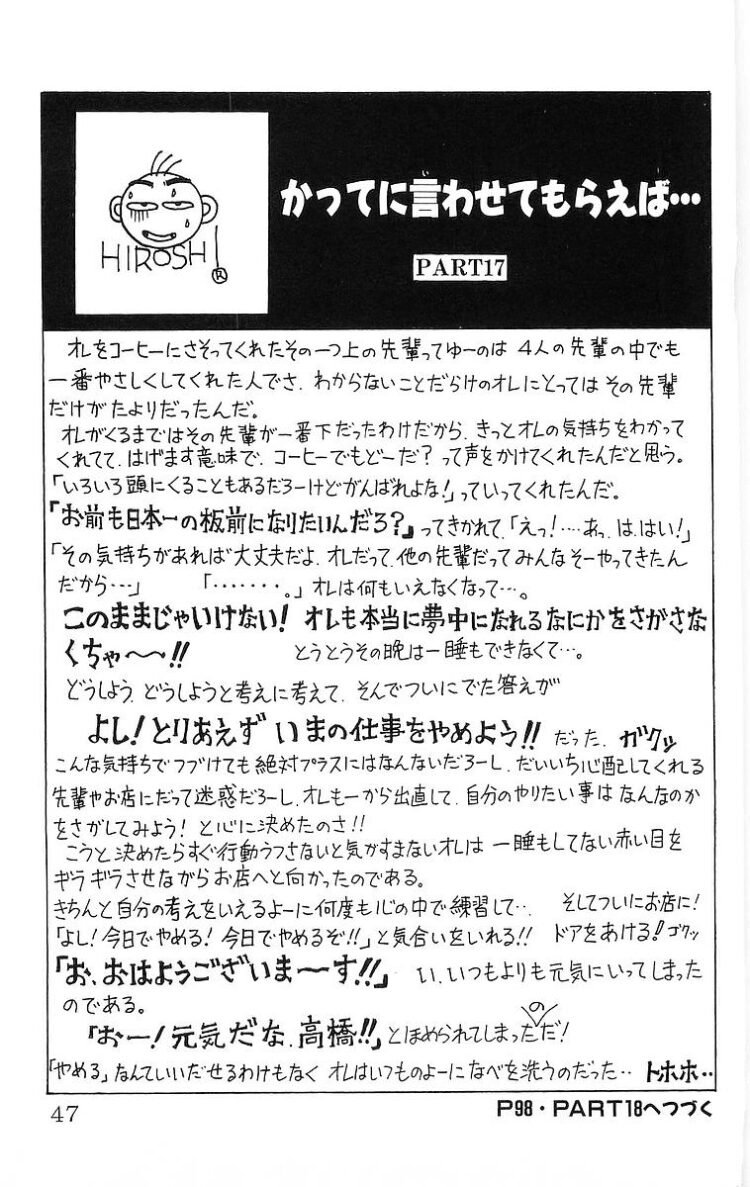 HIROSHI
®
かってに言わせてもらえば…
い
PART17
オレをコーヒーにさそってくれたその一つ上の先輩ってゆーのは 4人の先輩の中でも
一番やさしくしてくれた人でさ、わからないことだらけのオレにとっては その先輩
だけがたよりだったんだ。
オレがくるまではその先輩が一番下だったわけだから、きっとオレの気持ちをわかって
くれてて、はげます意味で、コーヒーでもどーだ？って声をかけてくれたんだと思う。
「いろいろ頭にくることもあるだろーけどがんばれよな！」っていってくれたんだ。
『お前も日本一の板前になりたいんだろ？』ってきかれて、「えっ！‥‥あっ、は、はい！」
「その気持ちがあれば大丈夫だよ、オレだって、他の先輩だってみんなそーやってきたん
だから‥‥」 「・・・・・・・。」オレは何もいえなくなって‥‥。
このままじゃいけない！ オレも本当に夢中になれるなにかをさがさな
くちゃ〜〜!! とうとうその晩は一睡もできなくて‥。
どうしよう、どうしようと考えに考えて、そんでついにでた答えが
よし！とりあえず いまの仕事をやめよう!! だった、ガクッ
こんな気持ちでつづけても絶対プラスにはなんないだろーし、だいいち心配してくれる
先輩やお店にだって迷惑だろーし、オレも一から出直して、自分のやりたい事はなんなのか
をさがしてみよう！ と心に決めたのさ!!
こうと決めたらすぐ行動うつさないと気がすまないオレは 一睡もしてない赤い目を
ギラギラさせながらお店へと向かったのである。
きちんと自分の考えをいえるよーに何度も心の中で練習して‥、 そしてついにお店に！
「よし！今日でやめる！今日でやめるぞ!!」と気合いをいれる!! ドアをあける！ゴクッ
『お、おはようございま〜〜す!!』 い、いつもよりも元気にいってしまった
のである。
『おー！元気だな、高橋!!』とほめられてしまったのだ！
「やめる」なんていいだせるわけもなく オレはいつものよーになべを洗うのだった‥ トホホ‥
47
P98・PART18へつづく